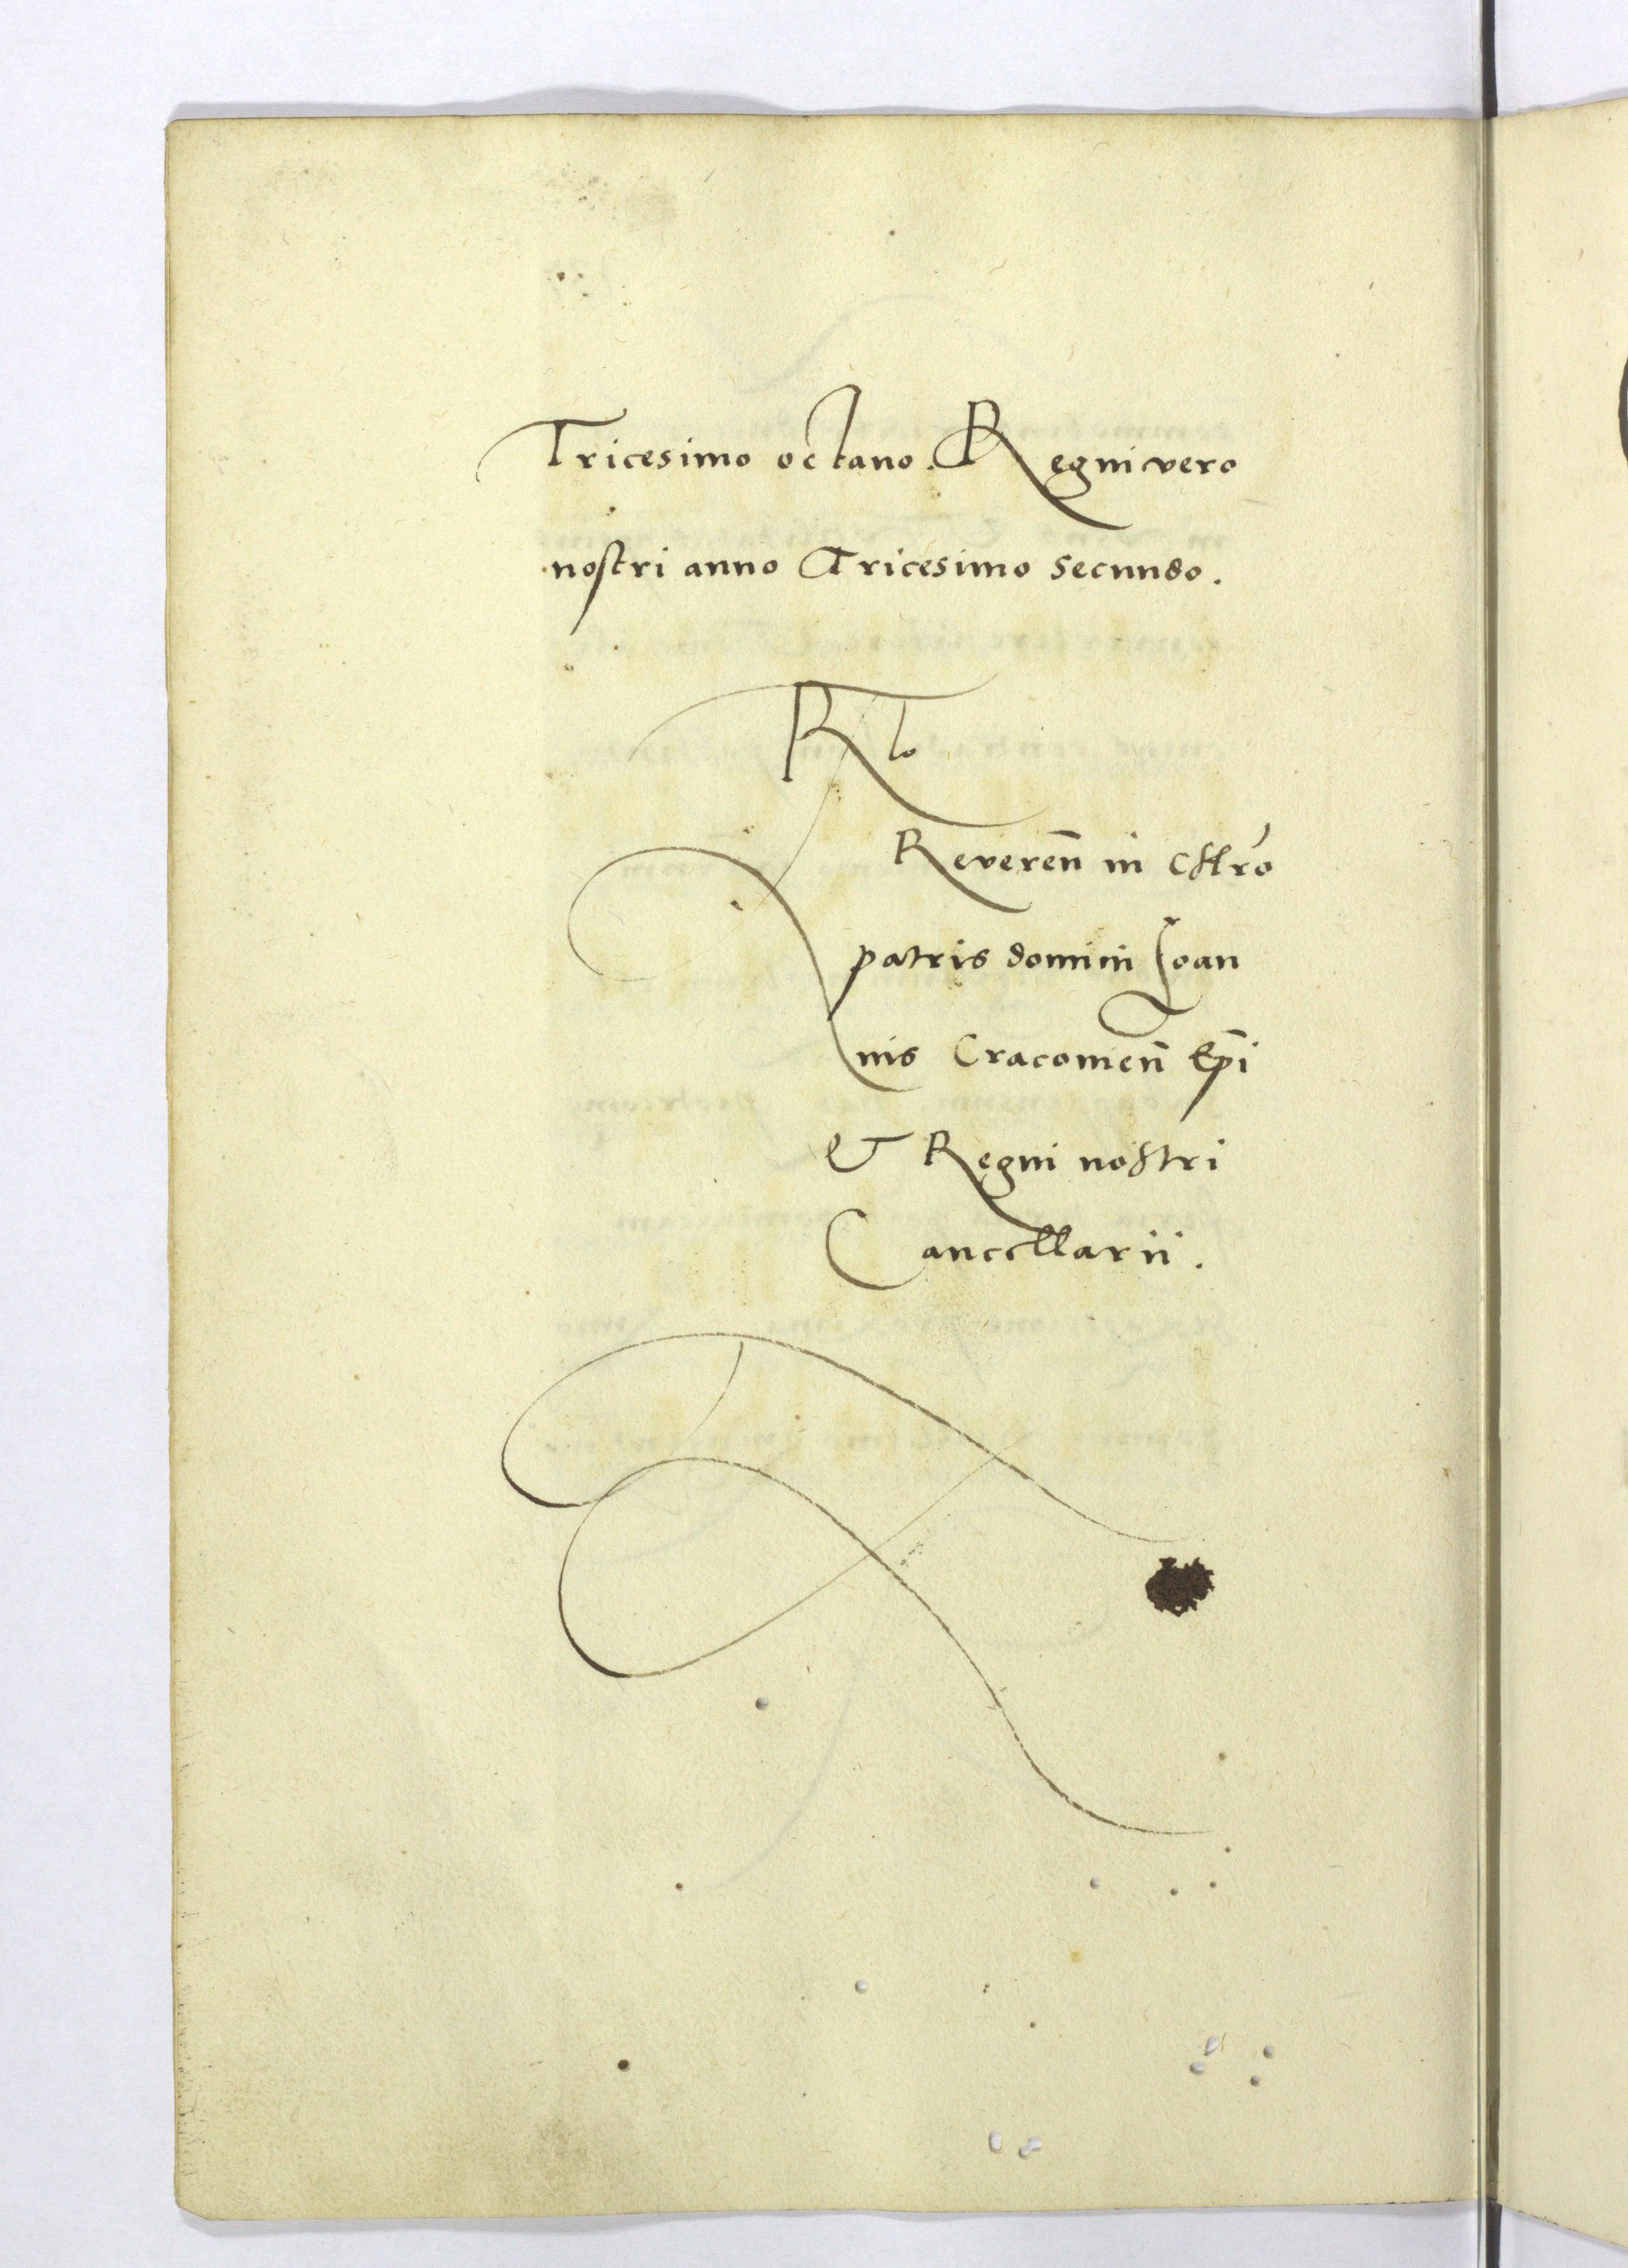 Tricesimo octavo. Regni vero
nostri anno Tricesimo secundo.
Rlo
Reveren̄ in Chr̄o
patris domini Joan
nis Cracovien̄ Ep̄i
& Regni nostri
Cancellarii.